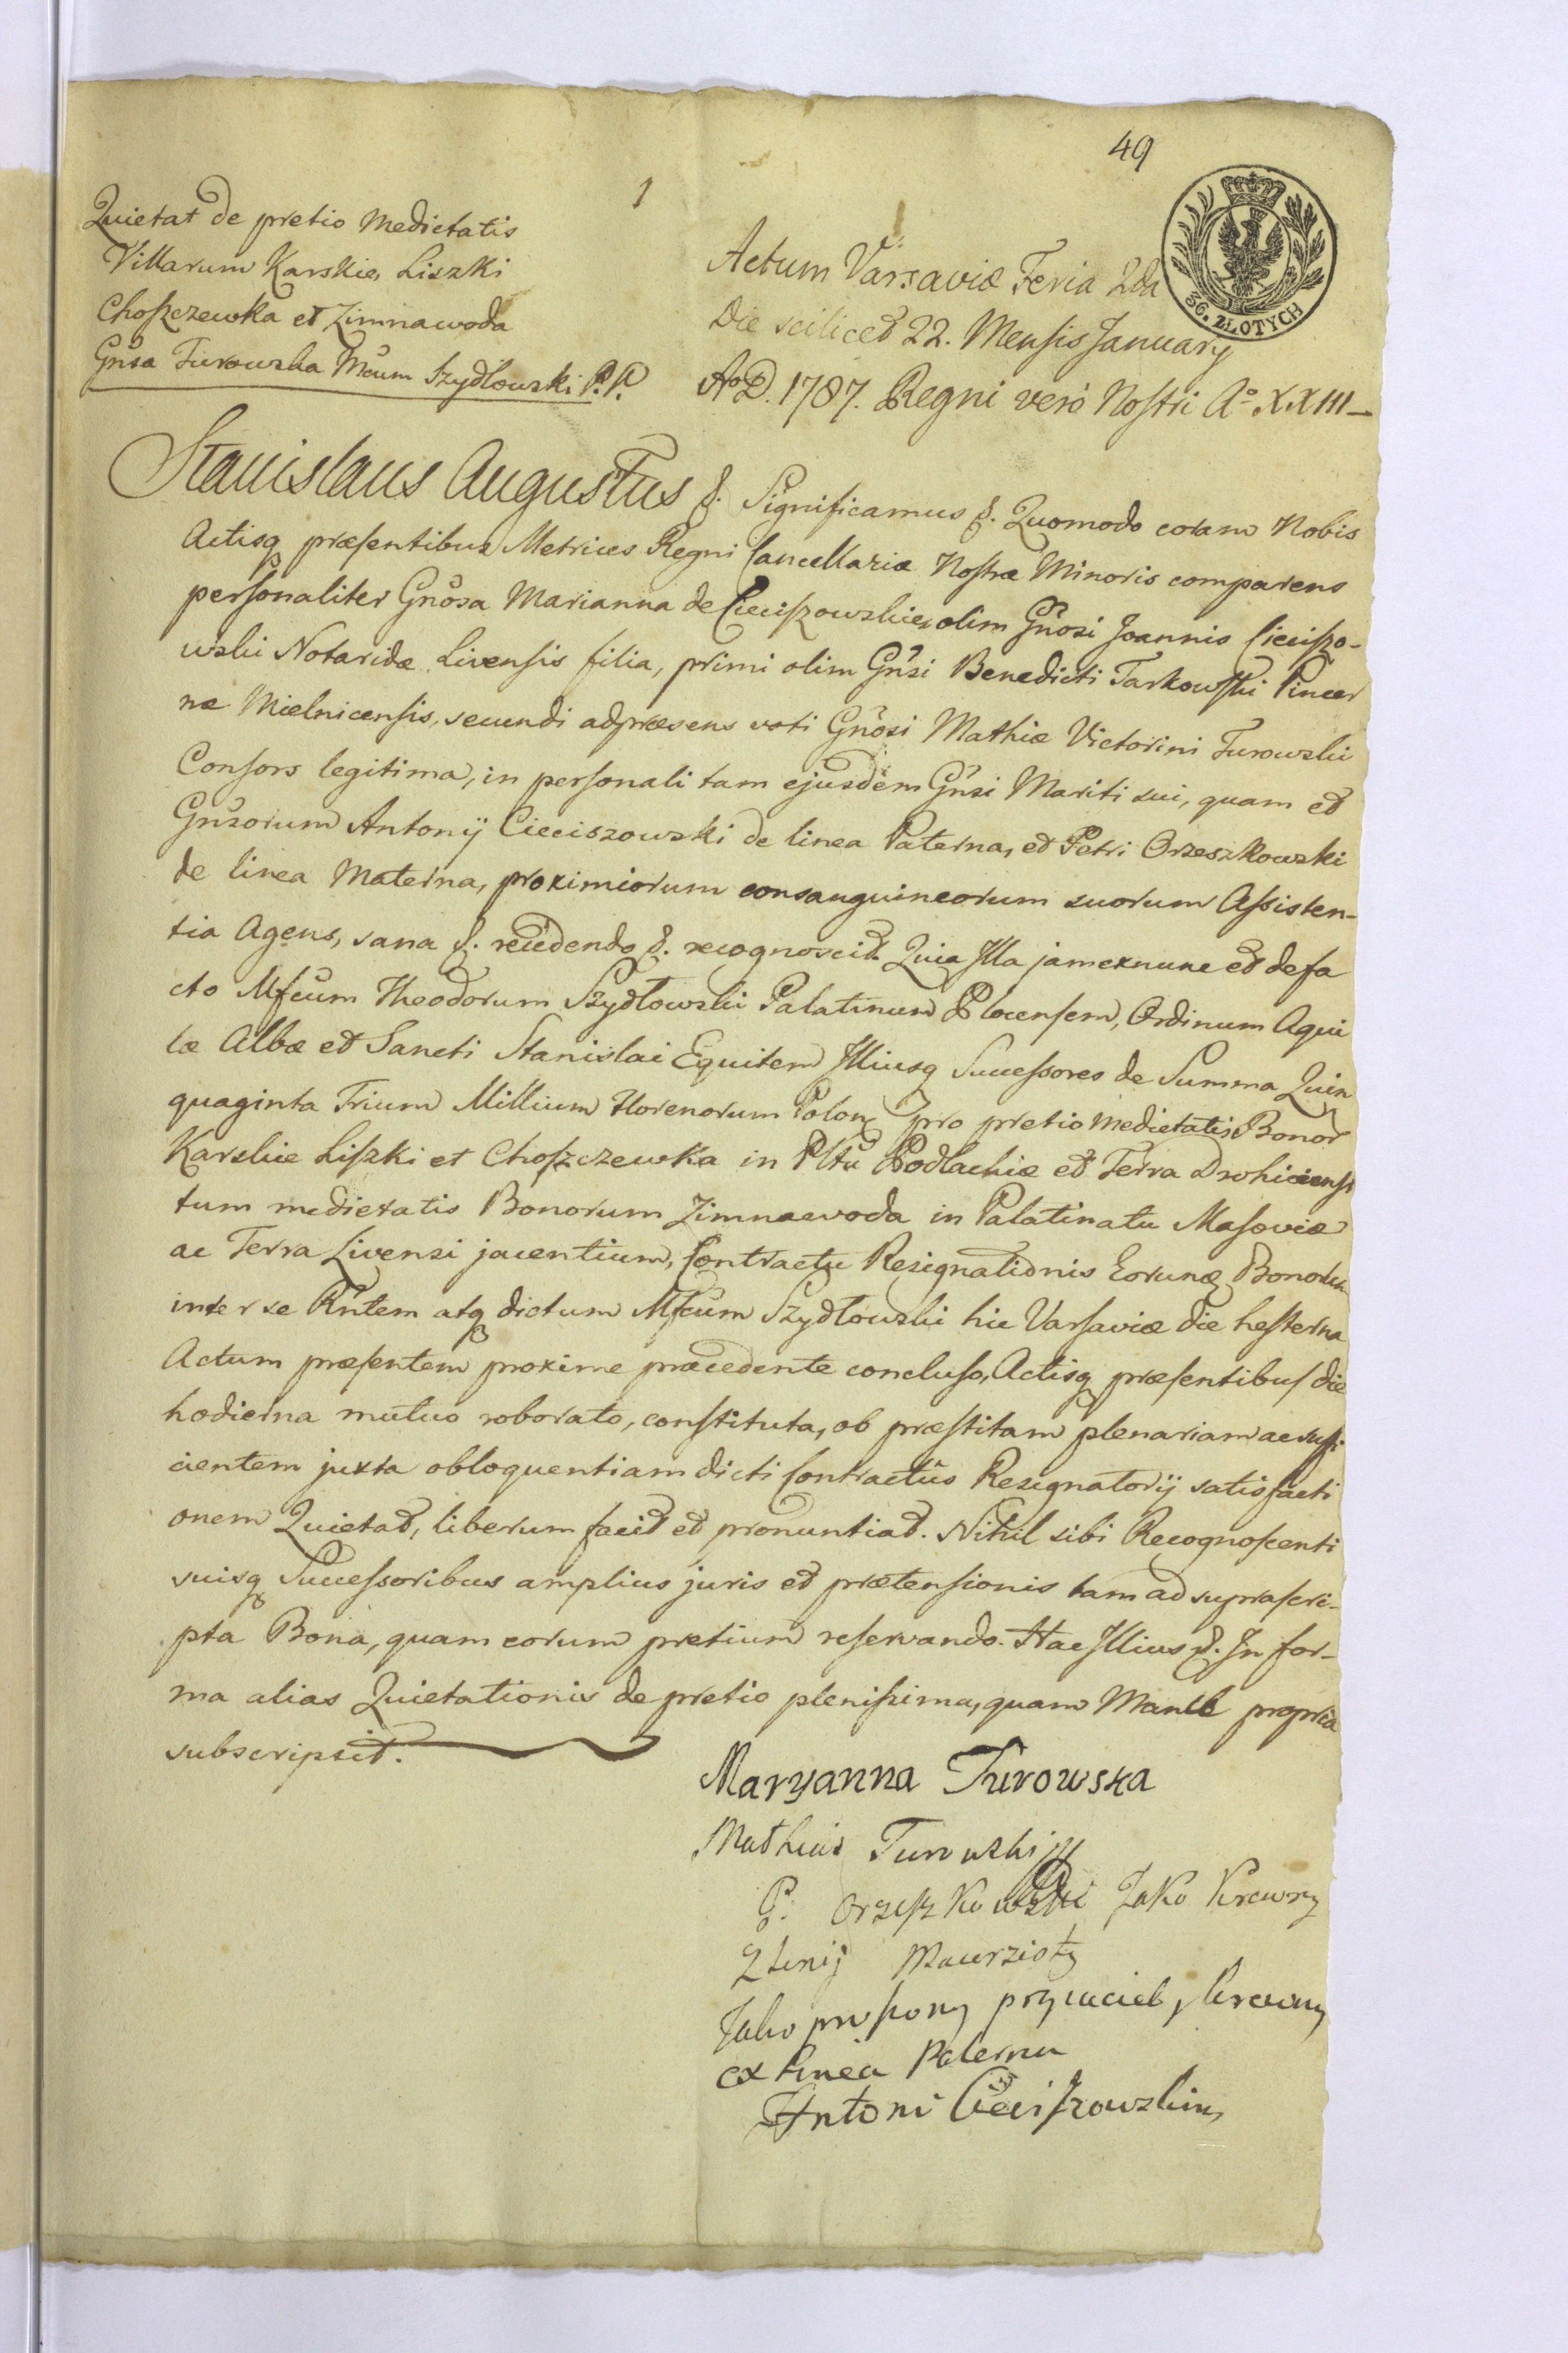 49
1
Quietat de pretio Medietatis
Villarum Karskie, Liszki
Choszczewka et Zimnawoda
Gnsa Turowska Mcum Szydłowski P. P.
Actum Varsaviæ Feria 2da
Die scilicet 22. Mensis January
Ao D. 1787. Regni verò Nostri Ao XXIII
36. ZŁOTYCH
Stanislaus Augustus &. Significamus &. Quomodo coram Nobis
Actisq præsentibus Metrices Regni Cancellariæ Nostræ Minoris comparens
personaliter Gnosa Marianna de Cieciszowskie, olim Gnosi Joannis Cieciszo-
wski Notaridæ Livensis filia, primi olim Gnsi Benedicti Tarkowski Pincer
næ Mielnicensis, secundi adpræsens voti Gnosi Mathiæ Victorini Turowski
Consors legitima, in personali tam ejusdem Gnsi Mariti sui, quam et
Gnsorum Antonij Cieciszowski de linea Paterna, et Petri Orzeszkowski
de linea Materna, proximiorum consanguineorum suorum Assisten-
tia Agens, sana &. recedendo &. recognoscit. Quia Illa jamexnunc et defa
cto Mfcum Theodorum Szydłowski Palatinum Plocensem, Ordinum Aqui
læ Albæ et Sancti Stanislai Equitem Illiusq Successores de Summa Quin
quaginta Trium Millium Florenorum Polon pro pretio medietatis Bonor
Karskie Liszki et Choszczewka in Pltu Podlachiæ et Terra Drohiciensi
tum medietatis Bonorum Zimnawoda in Palatinatu Masoviæ
ac Terra Livensi jacentium, Contractu Resignationis Eorunq Bonorum
inter se Rntem atq dictum Mfcum Szydłowski hic Varsaviæ die hesterna
Actum præsentem proxime præcedente concluso, Actisq præsentibus die
hodierna mutuo roborato, constituta, ob præstitam plenariam ac suffi
cientem juxta obloquentiam dicti Contractûs Resignatorij satisfacti
onem Quietat, liberum facit et pronuntiat. Nihil sibi Recognoscenti
suisq Successoribus amplius juris et prætensionis tam ad suprascri-
pta Bona, quam eorum pretium reservando. Hac Illius &. In for-
ma alias Quietationis de pretio plenissima, quam Manu propria
subscripsit.
Maryanna Turowska
Mathias Turowski
P. Orzeszkowski Jako Krewny
z Linij Macrzisty
Jako proszony przyiaciel y krewny
ex linea Paterna
Antoni Cieciszowski